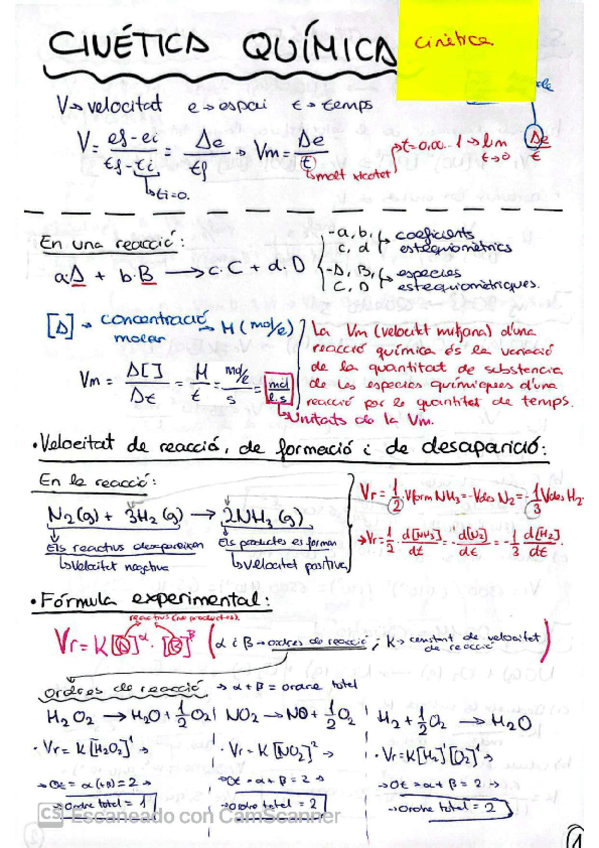 CINÉTICA QUÍMICA
Cinètica
V→velocitat e→espai t→temps
V = ef-ei / tf-ti = Δe / tf → Vm = Δe / t
→ti=0.
→molt xicotet
→t=0,00...1→lim t→0 Δe / t
En una reacció:
a·A + b·B → c·C + d·D
-a, b, c, d → coeficients estequiomètrics
-A, B, C, D → espècies estequiomètriques.
[A] → concentració molar → M (mol/l)
Vm = Δ[ ] / Δt = M / t = mol/l / s = mol / l·s
La Vm (velocitat mitjana) d'una
reacció química és la variació
de la quantitat de substància
de les espècies químiques d'una
reacció por le quantitat de temps.
→Unitats de la Vm.
·Velocitat de reacció, de formació i de desaparició:
En la reacció:
N₂(g) + 3H₂(g) → 2NH₃(g)
Els reactius desapareixen
→Velocitat negativa
Els productes es formen
→Velocitat positiva
Vr = 1/2 · Vform NH₃ = -Vdes N₂ = -1/3 Vdes H₂
→Vr = 1/2 · d[NH₃]/dt = -d[N₂]/dt = -1/3 d[H₂]/dt
·Fórmula experimental:
reactius (no productes).
Vr = K[A]^α · [B]^β (α i β → ordres de reacció ; K → constant de velocitat de reacció)
ordres de reacció → α+β = ordre total
H₂O₂ → H₂O + 1/2 O₂ NO₂ → NO + 1/2 O₂ H₂ + 1/2 O₂ → H₂O
·Vr = K[H₂O₂]¹ → ·Vr = K[NO₂]² → ·Vr = K[H₂]¹[O₂]¹ →
→Ot = α+β = 2 → →Ot = α+β = 2 →
→ordre total = 1 →ordre total = 2 →Ordre total = 2
CS Escaneado con CamScanner
1